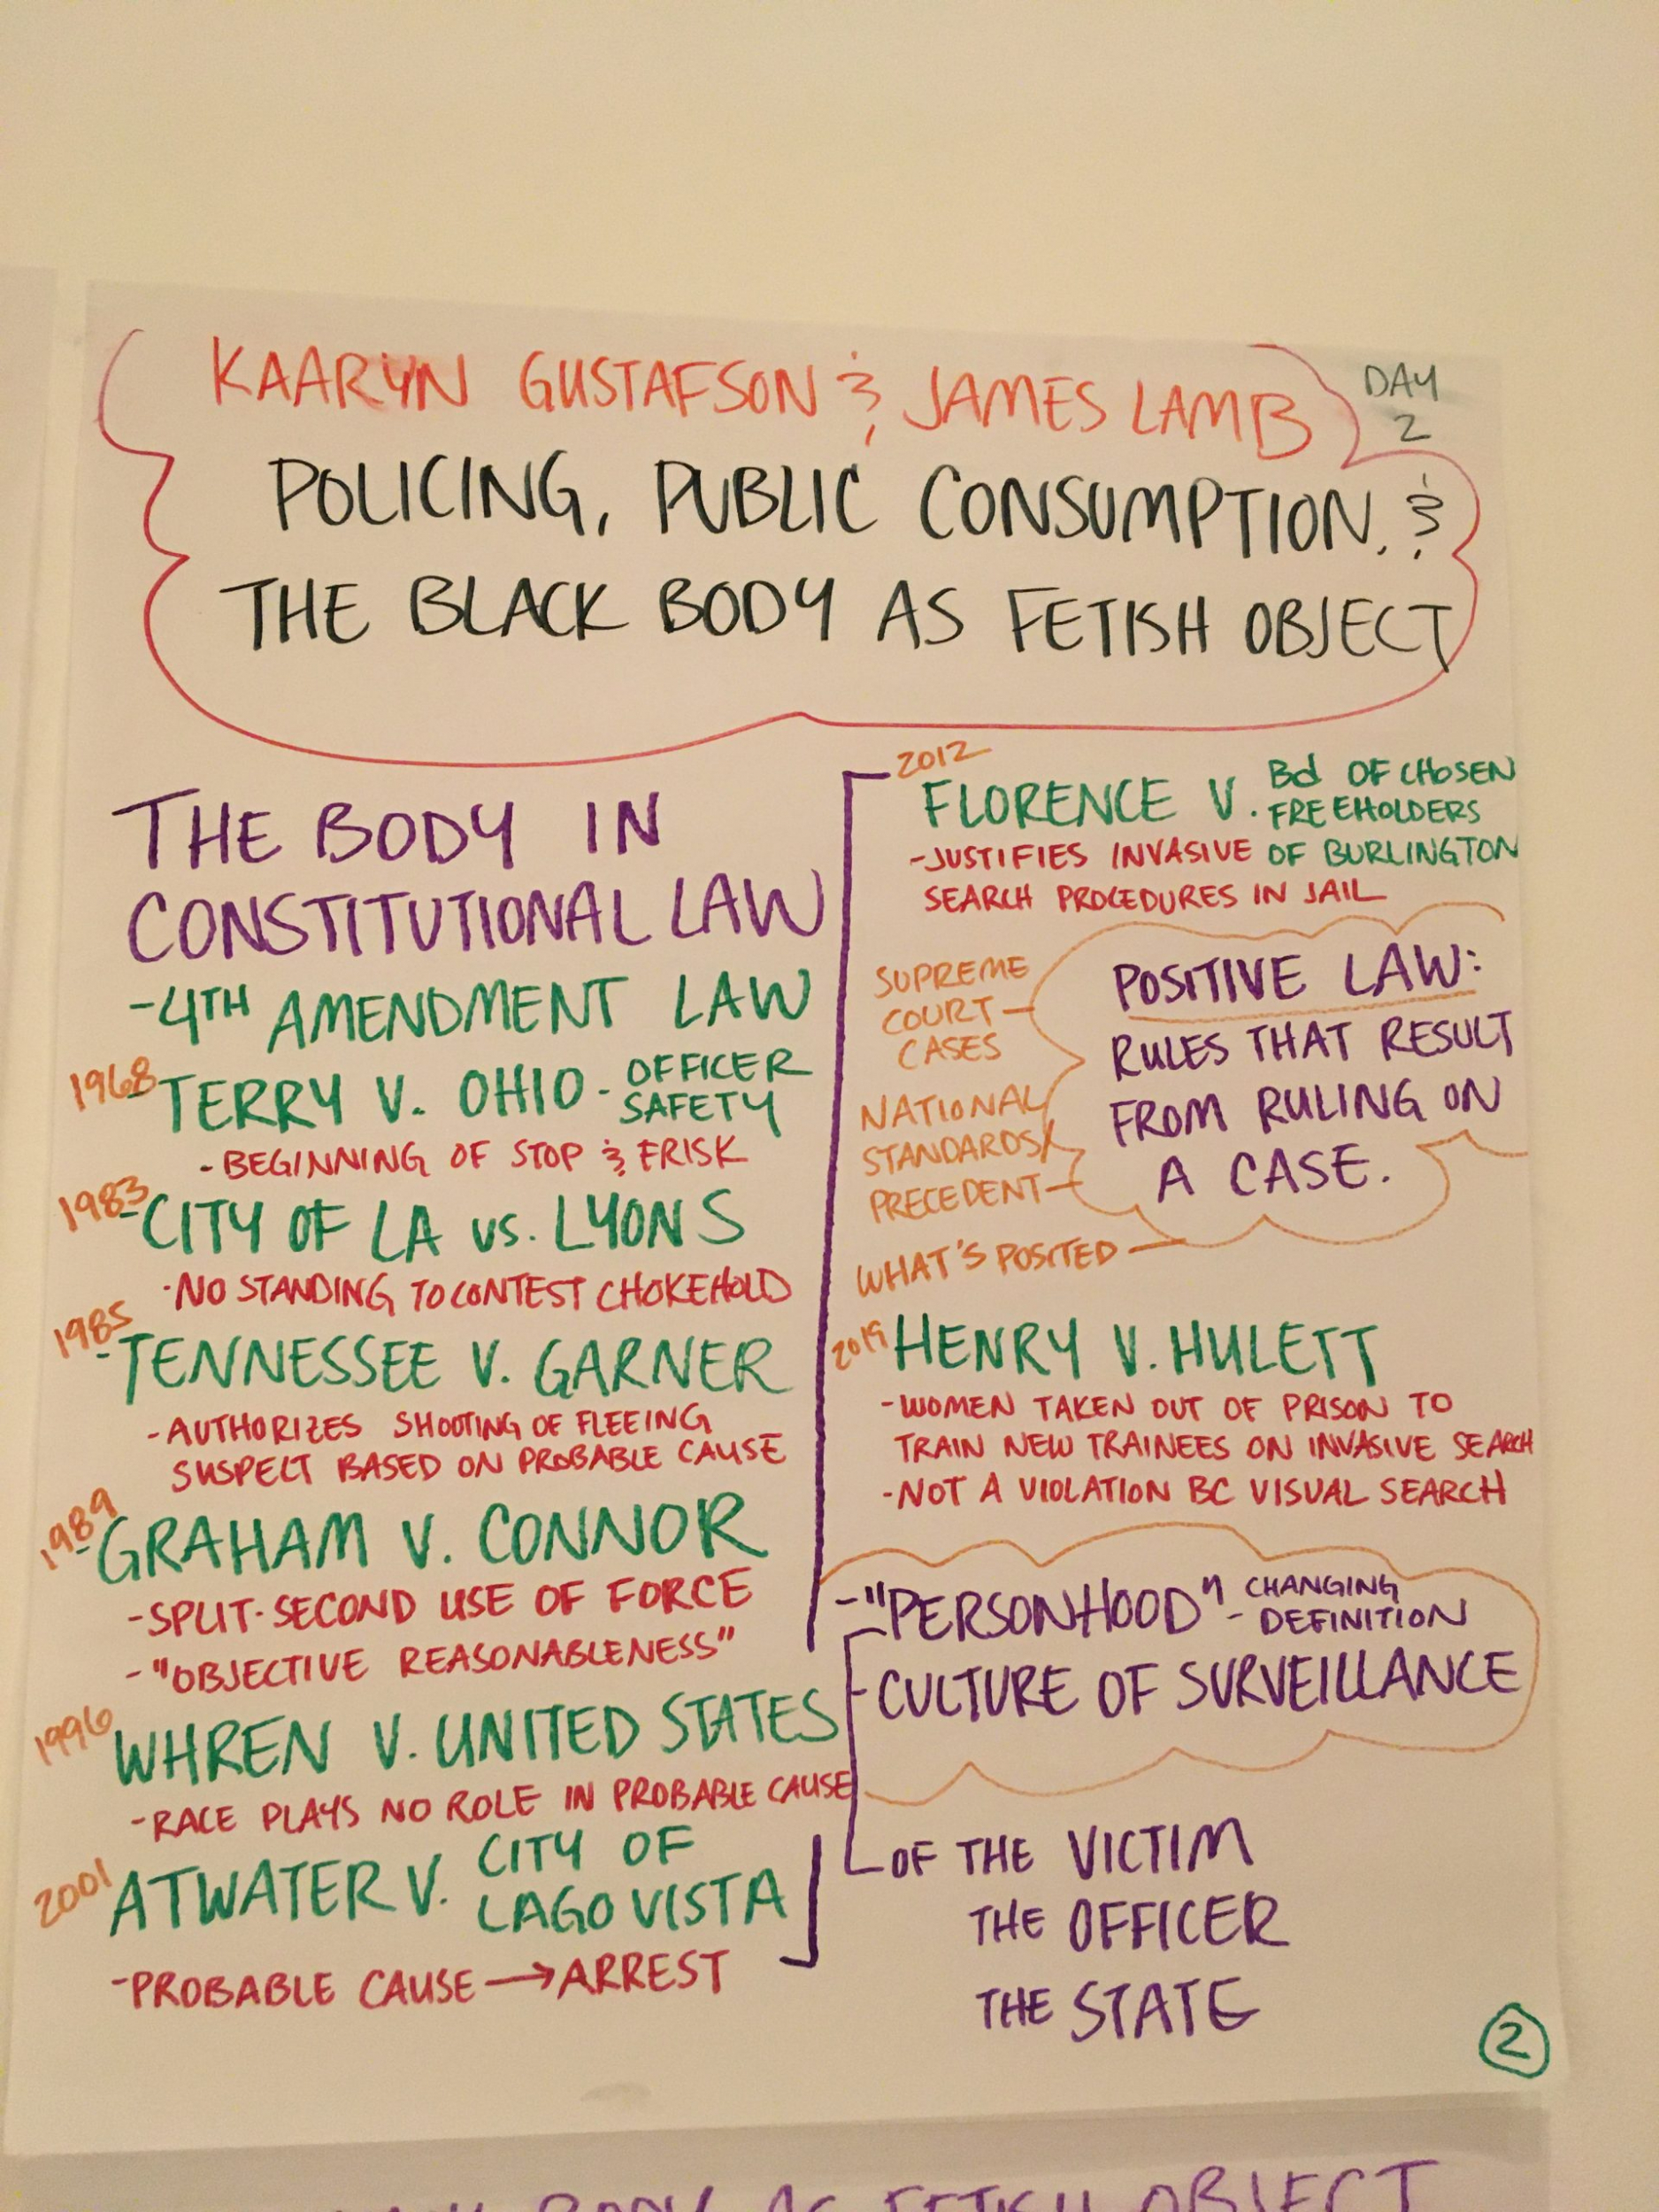 KAARYN GUSTAFSON & JAMES LAMB
DAY
2
POLICING, PUBLIC CONSUMPTION, &
THE BLACK BODY AS FETISH OBJECT
THE BODY IN
CONSTITUTIONAL LAW
-4TH AMENDMENT LAW
1968 -TERRY V. OHIO - OFFICER
SAFETY
-BEGINNING OF STOP & FRISK
1983 -CITY OF LA vs. LYONS
·NO STANDING TO CONTEST CHOKEHOLD
1985 -TENNESSEE V. GARNER
-AUTHORIZES SHOOTING OF FLEEING
SUSPECT BASED ON PROBABLE CAUSE
1989 -GRAHAM V. CONNOR
-SPLIT-SECOND USE OF FORCE
-"OBJECTIVE REASONABLENESS"
1996 WHREN V. UNITED STATES
-RACE PLAYS NO ROLE IN PROBABLE CAUSE
2001 ATWATER V. CITY OF
LAGO VISTA
-PROBABLE CAUSE → ARREST
2012
FLORENCE V. Bd OF CHOSEN
FREEHOLDERS
OF BURLINGTON
-JUSTIFIES INVASIVE
SEARCH PROCEDURES IN JAIL
POSITIVE LAW:
RULES THAT RESULT
FROM RULING ON
A CASE.
SUPREME
COURT
CASES
NATIONAL
STANDARDS/
PRECEDENT
WHAT'S POSITED
2019 HENRY V. HULETT
-WOMEN TAKEN OUT OF PRISON TO
TRAIN NEW TRAINEES ON INVASIVE SEARCH
-NOT A VIOLATION BC VISUAL SEARCH
-"PERSONHOOD" - CHANGING
DEFINITION
-CULTURE OF SURVEILLANCE
OF THE VICTIM
THE OFFICER
THE STATE
2
BODY AS FETISH OBJECT